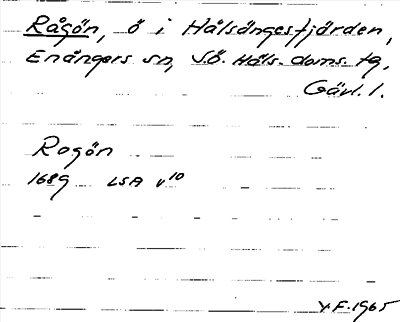 Rågön, ö i Hålsängesfjärden,
Enångers sn, S.Ö. Häls. doms. tg,
Gävl. l.
Rogön
1689 LSA v10
Y.F. 1965